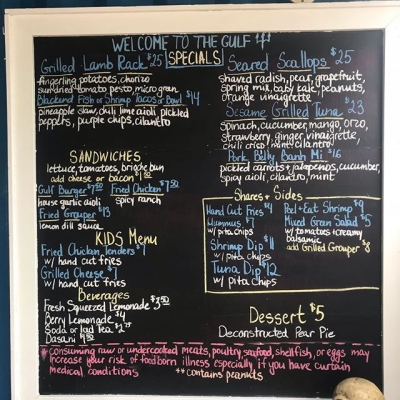 WELCOME TO THE GULF
SPECIALS
Grilled Lamb Rack $25
fingerling potatoes, chorizo
sundried tomato pesto, micro green
Blackened Fish or Shrimp Tacos or Bowl $14
pineapple slaw, chili lime aioli, pickled
peppers, purple chips, cilantro
Seared Scallops $25
shaved radish, pear, grapefruit,
spring mix, baby kale, peanuts,
orange vinaigrette
Sesame Grilled Tuna $23
Spinach, cucumber, mango, orzo,
strawberry, ginger, vinaigrette,
chili crisp, mint, cilantro
Pork Belly Banh Mi $16
pickled carrots + jalapenos, cucumber,
spicy aioli, cilantro, mint
SANDWICHES
lettuce, tomatoes, brioche bun
add cheese or bacon
Gulf Burger
house garlic aioli
Fried Chicken
spicy ranch
Fried Grouper $13
lemon dill sauce
KIDS Menu
Fried Chicken Tenders $7
w/ hand cut fries
Grilled Cheese $7
w/ hand cut fries
Beverages
Fresh Squeezed Lemonade
Berry Lemonade $4
Soda or Iced Tea
Dasani
Shares + Sides
Hand Cut Fries $4
Hummus $7
w/ pita chips
Shrimp Dip $11
w/ pita chips
Tuna Dip $12
w/ pita chips
Peel + Eat Shrimp $9
Mixed Green Salad $5
w/ tomatoes + creamy
balsamic
add Grilled Grouper $8
Dessert $5
Deconstructed Pear Pie
* consuming raw or undercooked meats, poultry, seafood, shellfish, or eggs may
increase your risk of foodborn illness especially if you have curtain
medical conditions
** contains peanuts